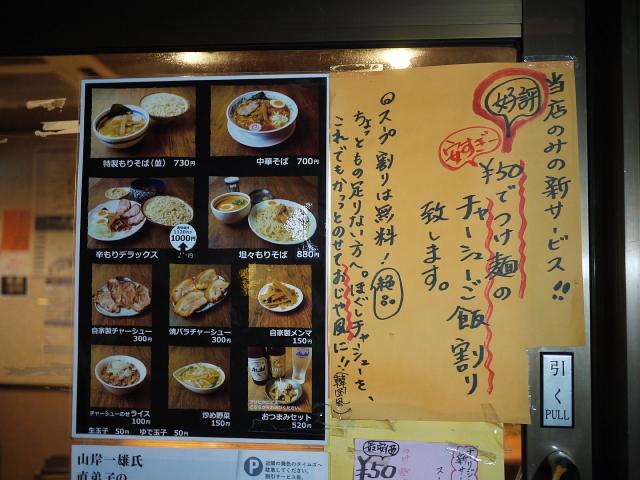 特製もりそば(並) 730円
中華そば 700円
辛もりデラックス
1000円
坦々もりそば 880円
自家製チャーシュー
300円
焼バラチャーシュー
300円
自家製メンマ
150円
チャーシューのせライス
100円
炒め野菜
150円
おつまみセット
520円
生玉子 50円 ゆで玉子 50円
Asahi
当店のみの新サービス!!
好評
安すぎ
¥50でつけ麺の
チャーシューご飯割り
致します。
スープ割りは無料!
絶品
ちょっともの足りない方へ。ほぐしチャーシューを、
これでもかっっとのせておじや風に!!
(韓国風)
引く
PULL
山岸一雄氏
直弟子の
P
近隣の黄色のタイムズへ
駐車してください。
¥50